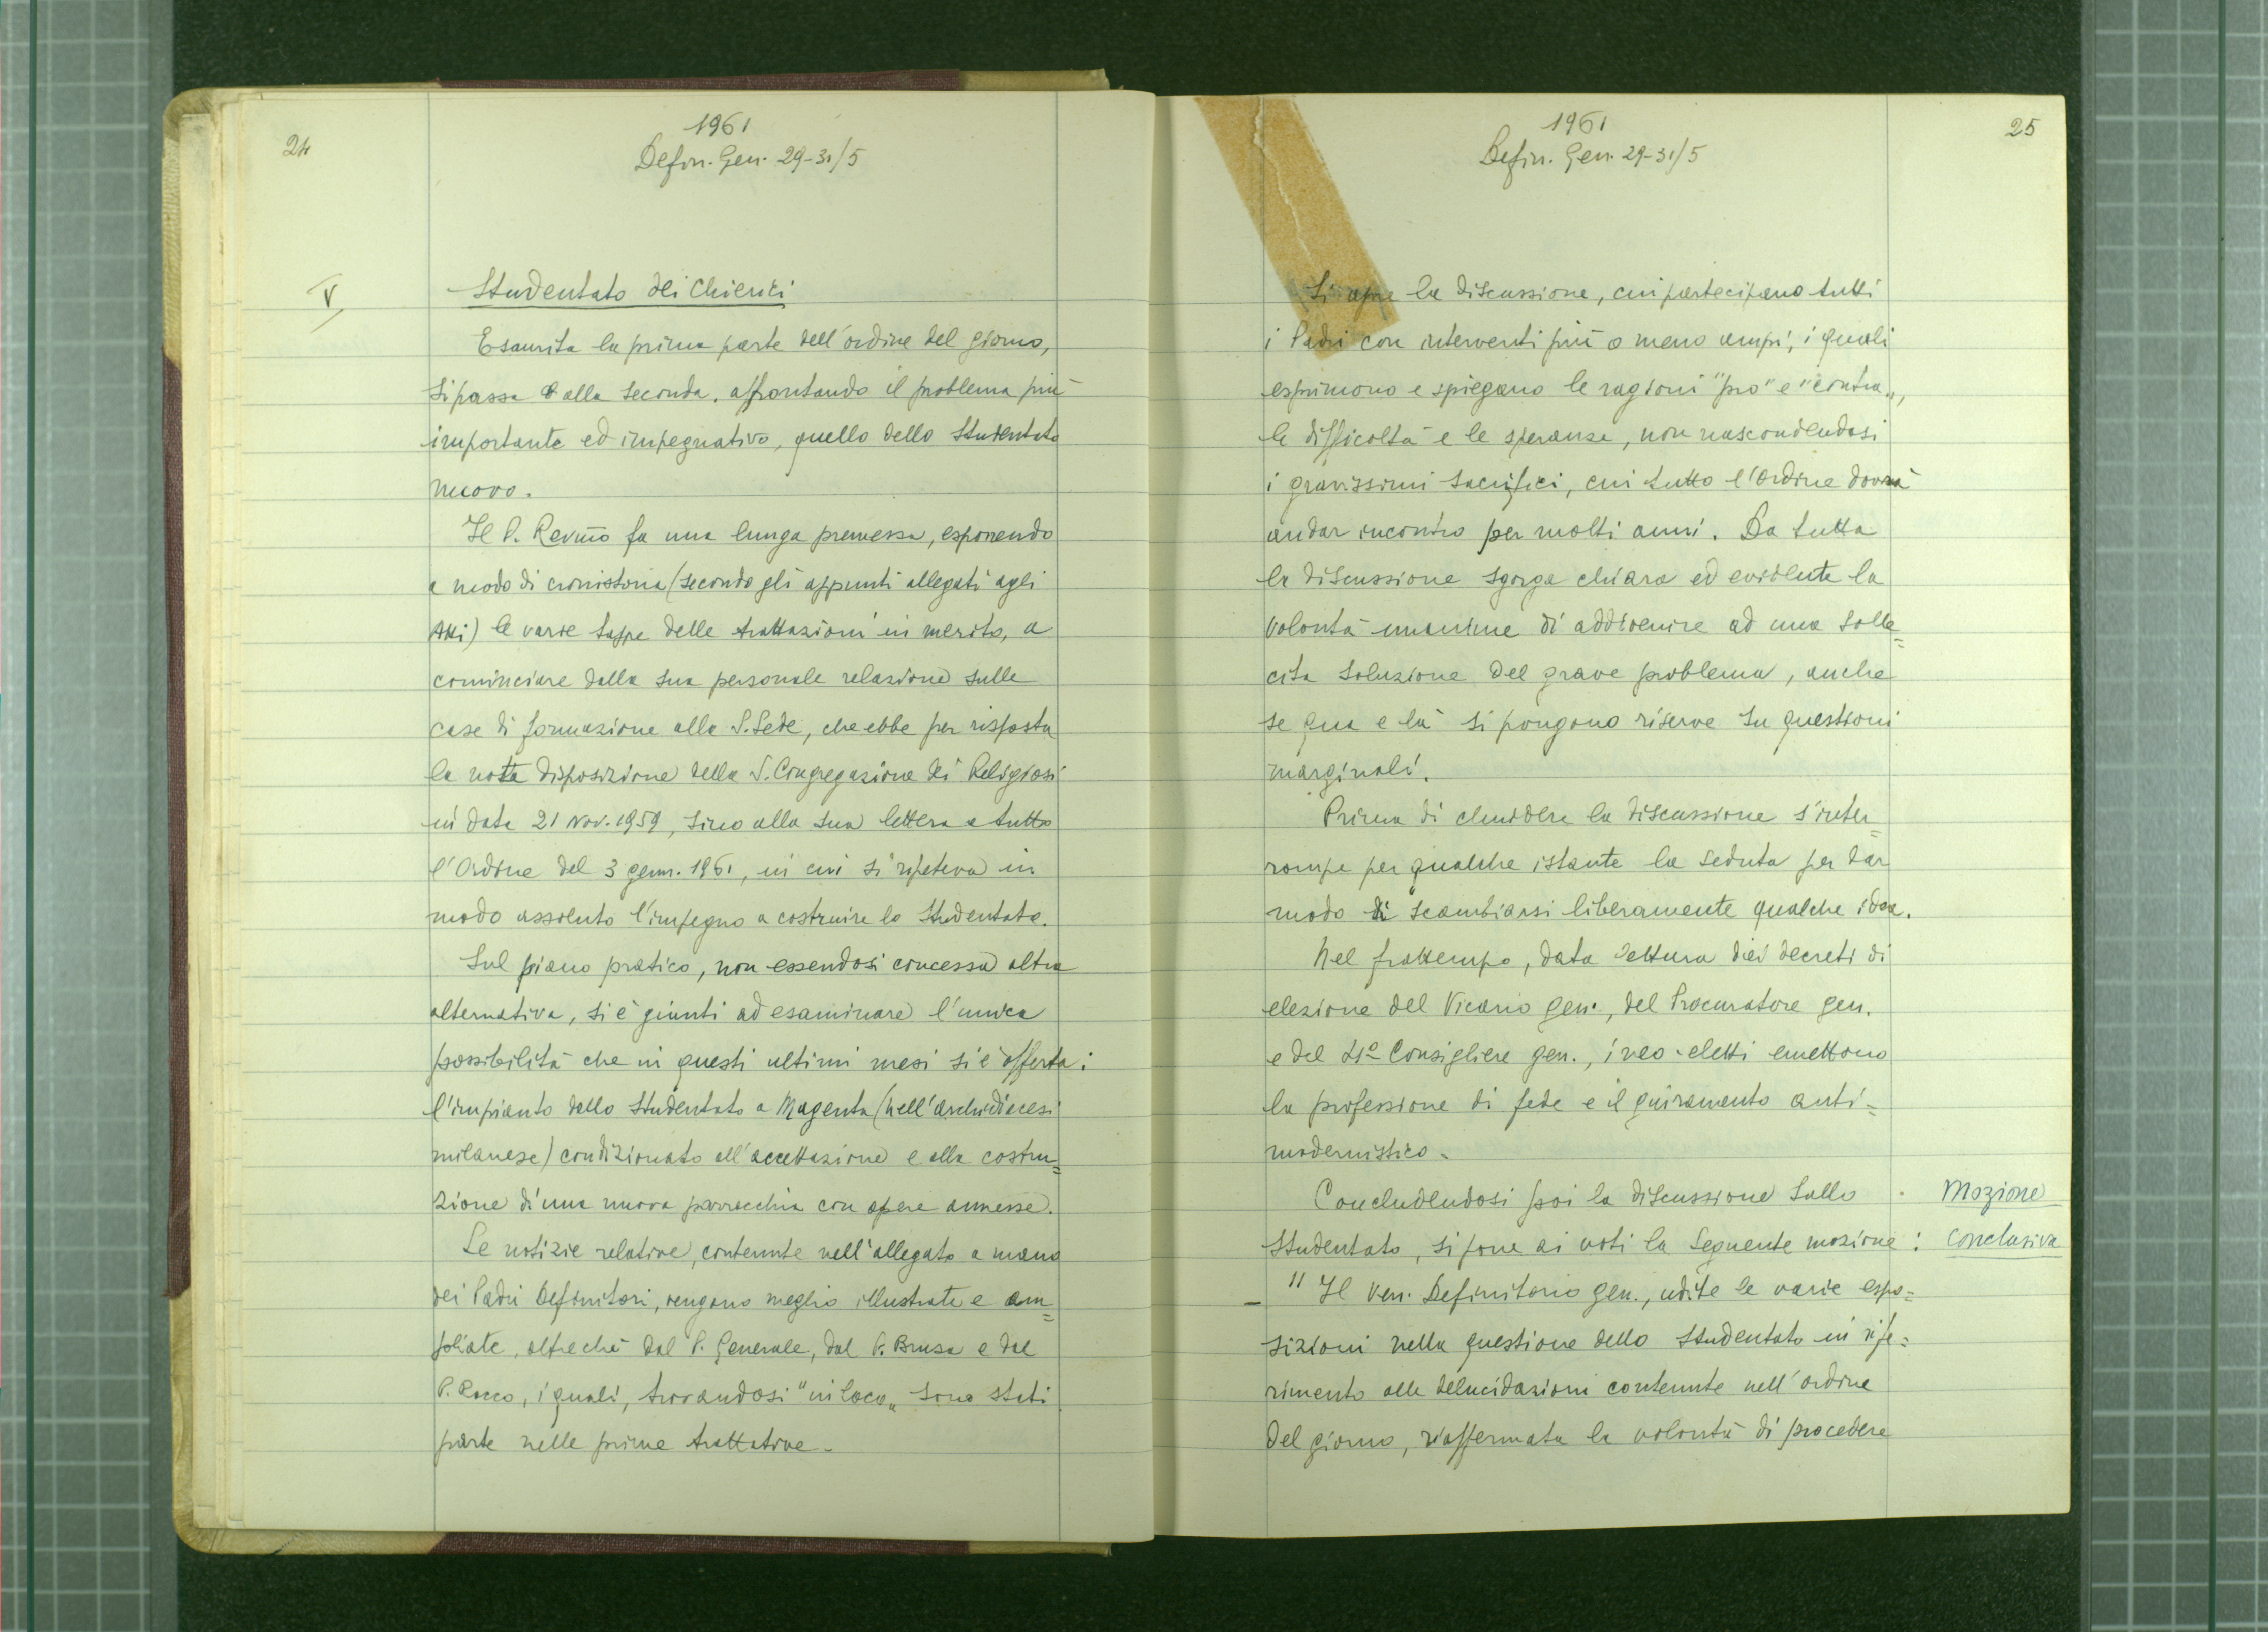 24
1961
Defin. Gen. 29-31/5
V
Studentato dei Chierici
Esaurita la prima parte dell'ordine del giorno,
si passa alla seconda, affrontando il problema più
importante ed impegnativo, quello dello Studentato
nuovo.
Il P. Rev.mo fa una lunga premessa, esponendo
a modo di cronistoria (secondo gli appunti allegati agli
Atti) le varie tappe delle trattazioni in merito, a
cominciare dalla sua personale relazione sulle
case di formazione alla S. Sede, che ebbe per risposta
la nota disposizione della S. Congregazione dei Religiosi
in data 21 Nov. 1959, sino alla sua lettera a tutto
l'Ordine del 3 genn. 1961, in cui si ripeteva in
modo assoluto l'impegno a costruire lo Studentato.
Sul piano pratico, non essendosi concessa altra
alternativa, si è giunti ad esaminare l'unica
possibilità che in questi ultimi mesi si è offerta:
l'impianto dello Studentato a Magenta (nell'archidiocesi
milanese) condizionato all'accettazione e alla costru=
zione di una nuova parrocchia con opere annesse.
Le notizie relative, contenute nell'allegato a mano
dei Padri Definitori, vengono meglio illustrate e am=
pliate, oltreché dal P. Generale, dal P. Brusa e dal
P. Rocco, i quali, trovandosi "in loco„ sono stati
parte nelle prime trattative.
25
1961
Defin. Gen. 29-31/5
Si apre la discussione, cui partecipano tutti
i Padri con interventi più o meno ampi, i quali
esprimono e spiegano le ragioni "pro" e "contra„,
le difficoltà e le speranze, non nascondendosi
i gravissimi sacrifici, cui tutto l'Ordine dovrà
andar incontro per molti anni. Da tutta
la discussione sgorga chiara ed evidente la
volontà unanime di addivenire ad una solle=
cita soluzione del grave problema, anche
se qua e là si pongono riserve su questioni
marginali.
Prima di chiudere la discussione s'inter=
rompe per qualche istante la seduta per dar
modo di scambiarsi liberamente qualche idea.
Nel frattempo, data lettura dei decreti di
elezione del Vicario gen., del Procuratore gen.
e del 4º Consigliere gen., i neo-eletti emettono
la professione di fede e il giuramento anti=
modernistico.
Concludendosi poi la discussione sullo
Studentato, si pone ai voti la seguente mozione:
Mozione
conclusiva
– "Il Ven. Definitorio gen., udite le varie espo=
sizioni nella questione dello Studentato in rife=
rimento alle delucidazioni contenute nell'ordine
del giorno, riaffermata la volontà di procedere